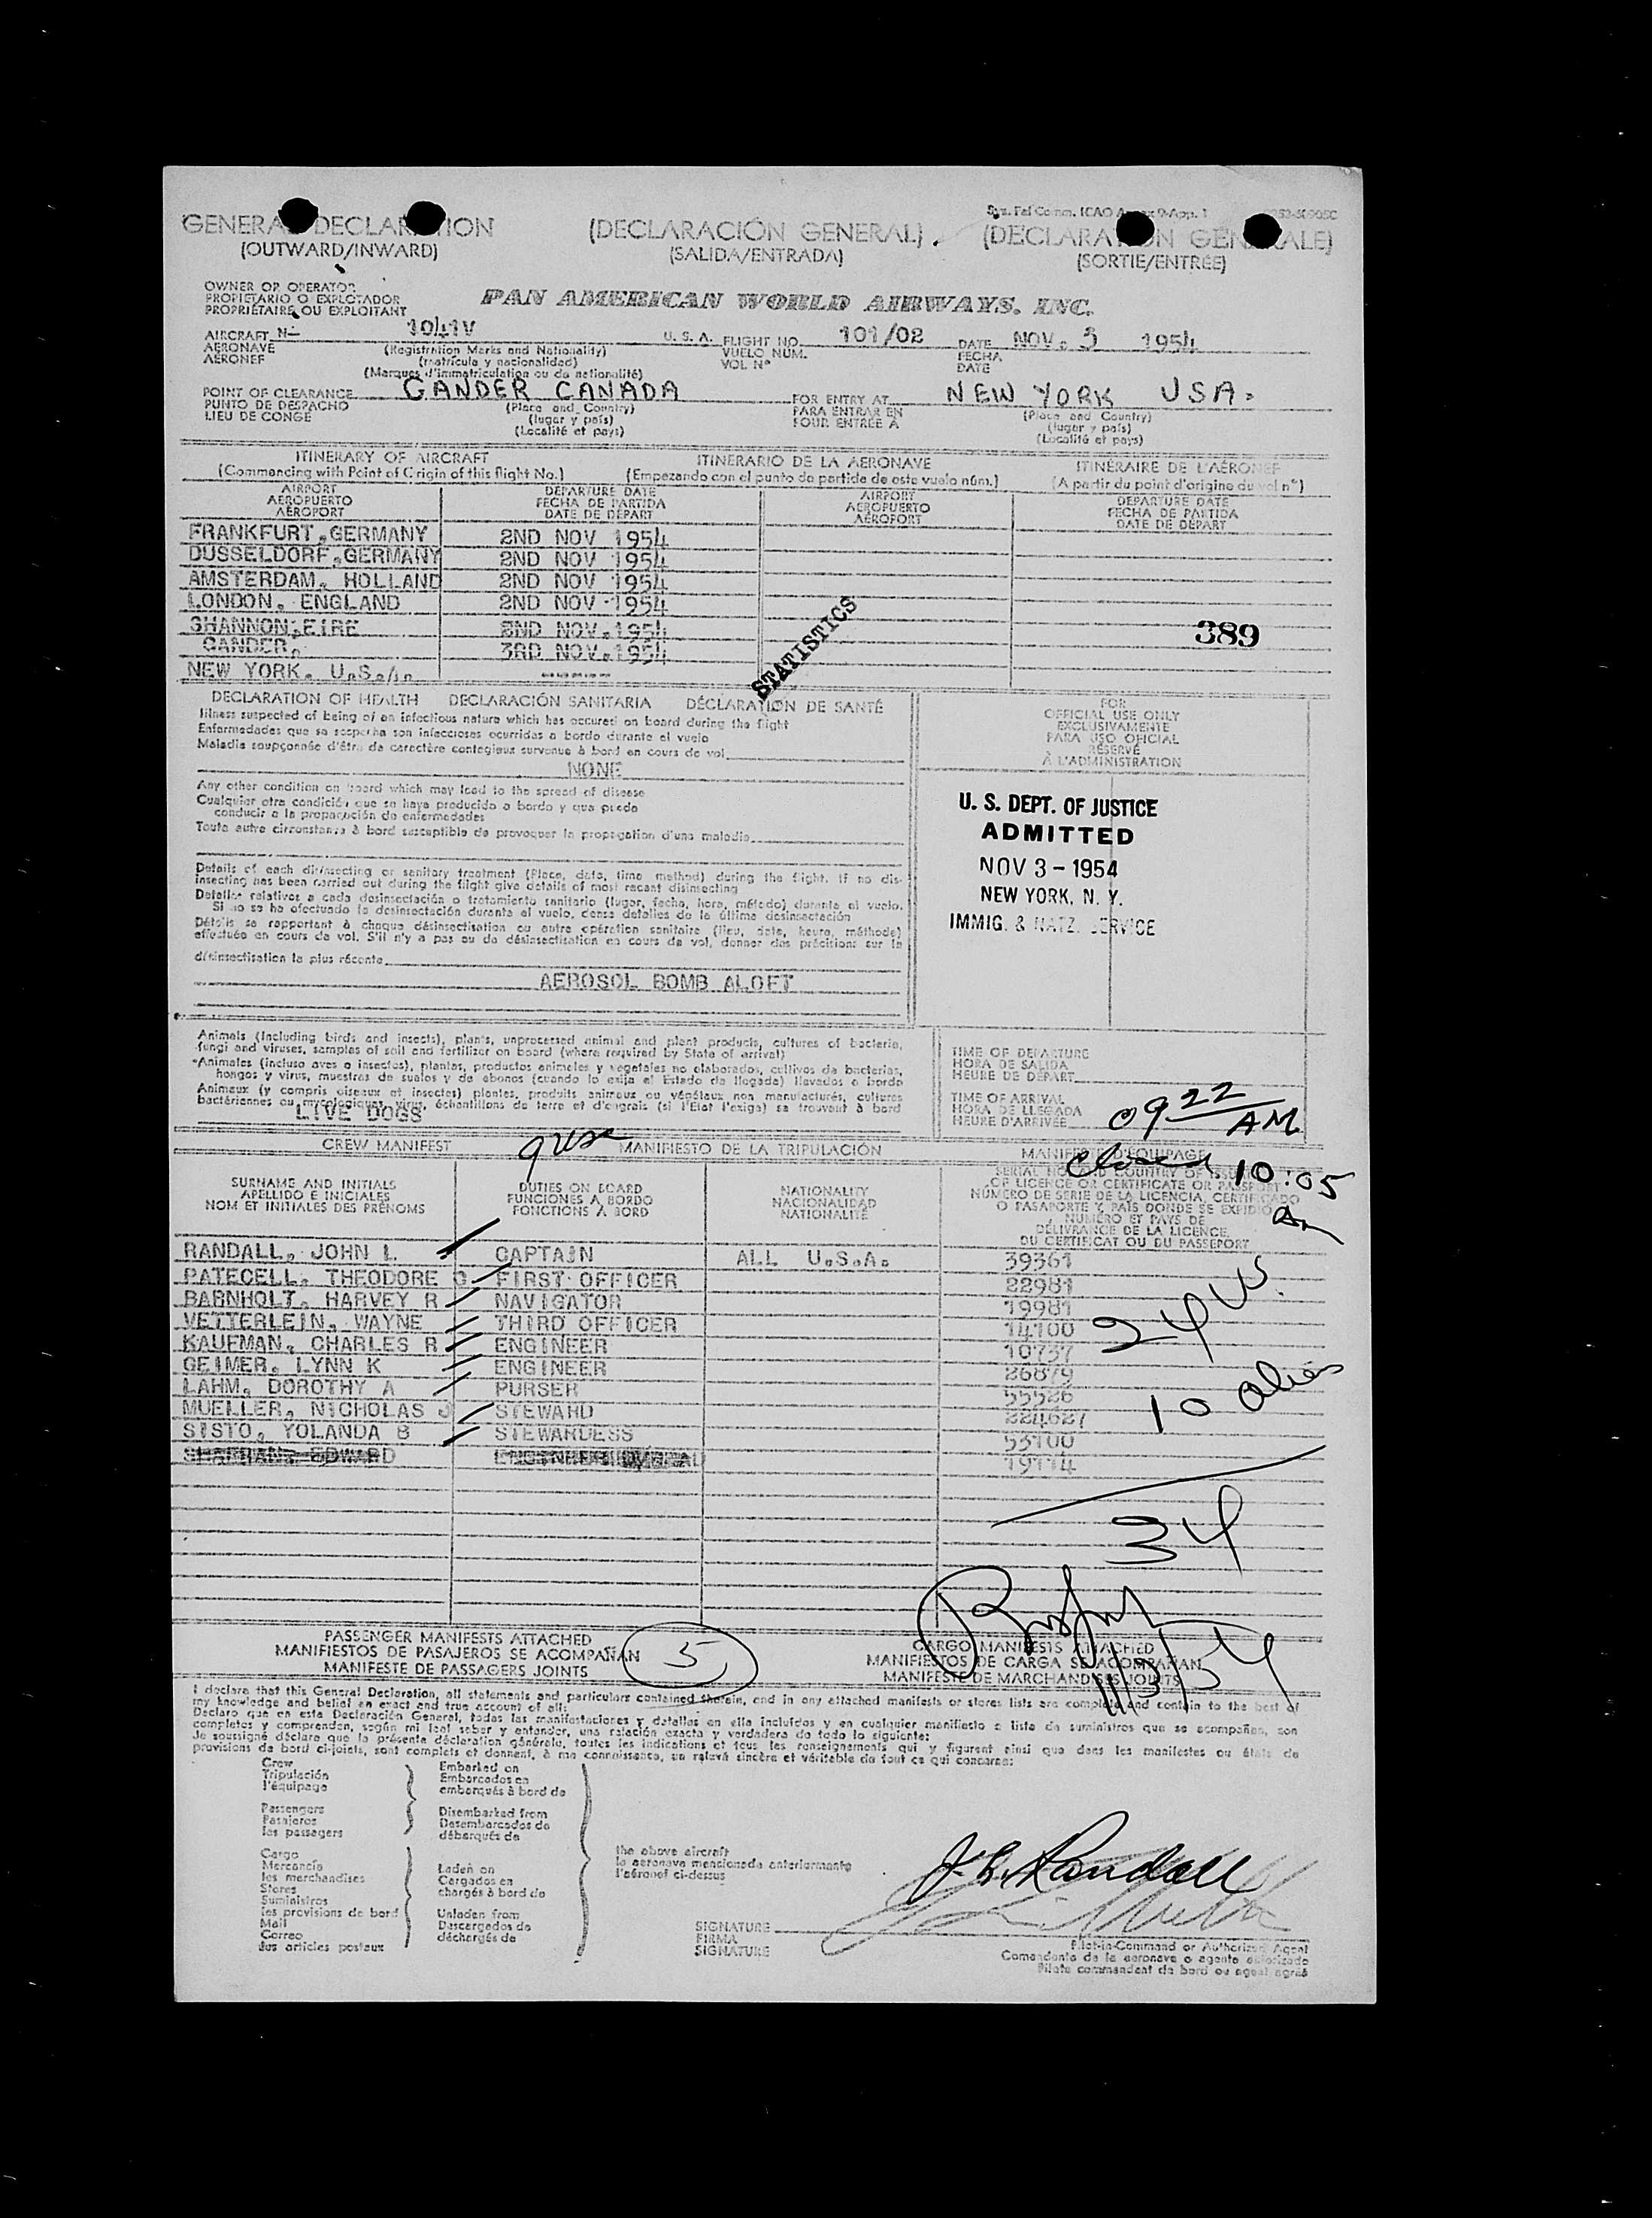 Sys. Fal Comm. ICAO Annex 9-App. 1
GENERAL DECLARATION (DECLARACIÓN GENERAL) (DECLARATION GENERALE)
(OUTWARD/INWARD) (SALIDA/ENTRADA) (SORTIE/ENTRÉE)
OWNER OR OPERATOR
PROPIETARIO O EXPLOTADOR
PROPRIÉTAIRE OU EXPLOITANT
PAN AMERICAN WORLD AIRWAYS. INC.
AIRCRAFT N- 1041V U. S. A. FLIGHT NO. 101/02 DATE NOV. 3 1954
AERONAVE (Registration Marks and Nationality) VUELO NÚM. FECHA
AÉRONEF (matrícula y nacionalidad) VOL Nº DATE
(Marques d'immatriculation ou de nationalité)
POINT OF CLEARANCE GANDER CANADA FOR ENTRY AT NEW YORK USA.
PUNTO DE DESPACHO (Place and Country) PARA ENTRAR EN (Place and Country)
LIEU DE CONGÉ (lugar y país) POUR ENTRÉE À (lugar y país)
(Localité et pays) (Localité et pays)
ITINERARY OF AIRCRAFT ITINERARIO DE LA AERONAVE ITINÉRAIRE DE L'AÉRONEF
(Commencing with Point of Origin of this flight No.) (Empezando con el punto de partida de este vuelo núm.) (A partir du point d'origine du vol nº)
AIRPORT DEPARTURE DATE AIRPORT DEPARTURE DATE
AEROPUERTO FECHA DE PARTIDA AEROPUERTO FECHA DE PARTIDA
AÉROPORT DATE DE DÉPART AÉROPORT DATE DE DÉPART
FRANKFURT,GERMANY 2ND NOV 1954
DUSSELDORF,GERMANY 2ND NOV 1954
AMSTERDAM, HOLLAND 2ND NOV 1954
LONDON, ENGLAND 2ND NOV 1954
SHANNON,EIRE 2ND NOV.1954
GANDER, 3RD NOV.1954
NEW YORK. U.S.A. -----
STATISTICS
389
DECLARATION OF HEALTH DECLARACIÓN SANITARIA DÉCLARATION DE SANTÉ
Illness suspected of being of an infectious nature which has occured on board during the flight
Enfermedades que se sospecha son infecciosas ocurridas a bordo durante el vuelo
Maladie soupçonnée d'être de caractère contagieux survenue à bord en cours de vol
NONE
Any other condition on board which may lead to the spread of disease
Cualquier otra condición que se haya producido a bordo y que puede
conducir a la propagación de enfermedades
Toute autre circonstance à bord susceptible de provoquer la propagation d'une maladie
Details of each disinsecting or sanitary treatment (Place, date, time method) during the flight. If no dis-
insecting has been carried out during the flight give details of most recent disinsecting
Detalles relativos a cada desinsectación o tratamiento sanitario (lugar, fecha, hora, método) durante el vuelo.
Si no se ha efectuado la desinsectación durante el vuelo, dense detalles de la última desinsectación
Détails se rapportant à chaque désinsectisation ou autre opération sanitaire (lieu, date, heure, méthode)
effectuée en cours de vol. S'il n'y a pas eu de désinsectisation en cours de vol, donner des précisions sur la
désinsectisation la plus récente
AEROSOL BOMB ALOFT
FOR
OFFICIAL USE ONLY
EXCLUSIVAMENTE
PARA USO OFICIAL
RÉSERVÉ
À L'ADMINISTRATION
U. S. DEPT. OF JUSTICE
ADMITTED
NOV 3 - 1954
NEW YORK, N. Y.
IMMIG. & NATZ. SERVICE
Animals (including birds and insects), plants, unprocessed animal and plant products, cultures of bacteria,
fungi and viruses, samples of soil and fertilizer on board (where required by State of arrival)
Animales (incluso aves o insectos), plantas, productos animales y vegetales no elaborados, cultivos de bacterias,
hongos y virus, muestras de suelos y de abonos (cuando lo exija el Estado de llegada) llevados a bordo
Animaux (y compris oiseaux et insectes) plantes, produits animaux ou végétaux non manufacturés, cultures
bactériennes ou mycologiques, virus, échantillons de terre et d'engrais (si l'Etat l'exige) se trouvant à bord
LIVE DOGS
TIME OF DEPARTURE
HORA DE SALIDA
HEURE DE DÉPART
TIME OF ARRIVAL
HORA DE LLEGADA
HEURE D'ARRIVÉE
09 22 AM
closed 10:05 Am
CREW MANIFEST MANIFIESTO DE LA TRIPULACIÓN MANIFESTE D'ÉQUIPAGE
SURNAME AND INITIALS DUTIES ON BOARD NATIONALITY SERIAL NO. AND COUNTRY OF ISSUE
APELLIDO E INICIALES FUNCIONES A BORDO NACIONALIDAD OF LICENCE OR CERTIFICATE OR PASSPORT
NOM ET INITIALES DES PRÉNOMS FONCTIONS À BORD NATIONALITÉ NÚMERO DE SERIE DE LA LICENCIA, CERTIFICADO
O PASAPORTE Y PAÍS DONDE SE EXPIDIÓ
NUMÉRO ET PAYS DE
DÉLIVRANCE DE LA LICENCE,
DU CERTIFICAT OU DU PASSEPORT
RANDALL, JOHN L CAPTAIN ALL U.S.A. 39361
PATECELL, THEODORE FIRST OFFICER 22981
BARNHOLT, HARVEY R NAVIGATOR 19981
VETTERLEIN, WAYNE THIRD OFFICER 14100
KAUFMAN, CHARLES R ENGINEER 10737
GEIMER, LYNN K ENGINEER 26879
LAHM, DOROTHY A PURSER 55526
MUELLER, NICHOLAS J STEWARD 224627
SISTO, YOLANDA B STEWARDESS 53100
EDWARD 19114
24 US.
10 alies
34
11/3/54
PASSENGER MANIFESTS ATTACHED CARGO MANIFESTS ATTACHED
MANIFIESTOS DE PASAJEROS SE ACOMPAÑAN 5 MANIFIESTOS DE CARGA SE ACOMPAÑAN
MANIFESTE DE PASSAGERS JOINTS MANIFESTE DE MARCHANDISES JOINTS
I declare that this General Declaration, all statements and particulars contained therein, and in any attached manifests or stores lists are complete and contain to the best of
my knowledge and belief an exact and true account of all:
Declaro que en esta Declaración General, todas las manifestaciones y detalles en ella incluídos y en cualquier manifiesto o lista de suministros que se acompañan, son
completos y comprenden, según mi leal saber y entender, una relación exacta y verdadera de todo lo siguiente:
Je soussigné déclare que la présente déclaration générale, toutes les indications et tous les renseignements qui y figurent ainsi que dans les manifestes ou états de
provisions de bord ci-joints, sont complets et donnent, à ma connaissance, un relevé sincère et véritable de tout ce qui concerne:
Crew Embarked on
Tripulación Embarcados en
l'équipage embarqués à bord de
Passengers Disembarked from
Pasajeros Desembarcados de
les passagers débarqués de
Cargo
Mercancía Laden on
les marchandises Cargados en
Stores chargés à bord de
Suministros
les provisions de bord Unladen from
Mail Descargados de
Correo déchargés de
des articles postaux
the above aircraft
la aeronave mencionada anteriormente
l'aéronef ci-dessus
J. L. Randall
SIGNATURE
FIRMA
SIGNATURE
Pilot-in-Command or Authorized Agent
Comandante de la aeronave o agente autorizado
Pilote commandant de bord ou agent agréé